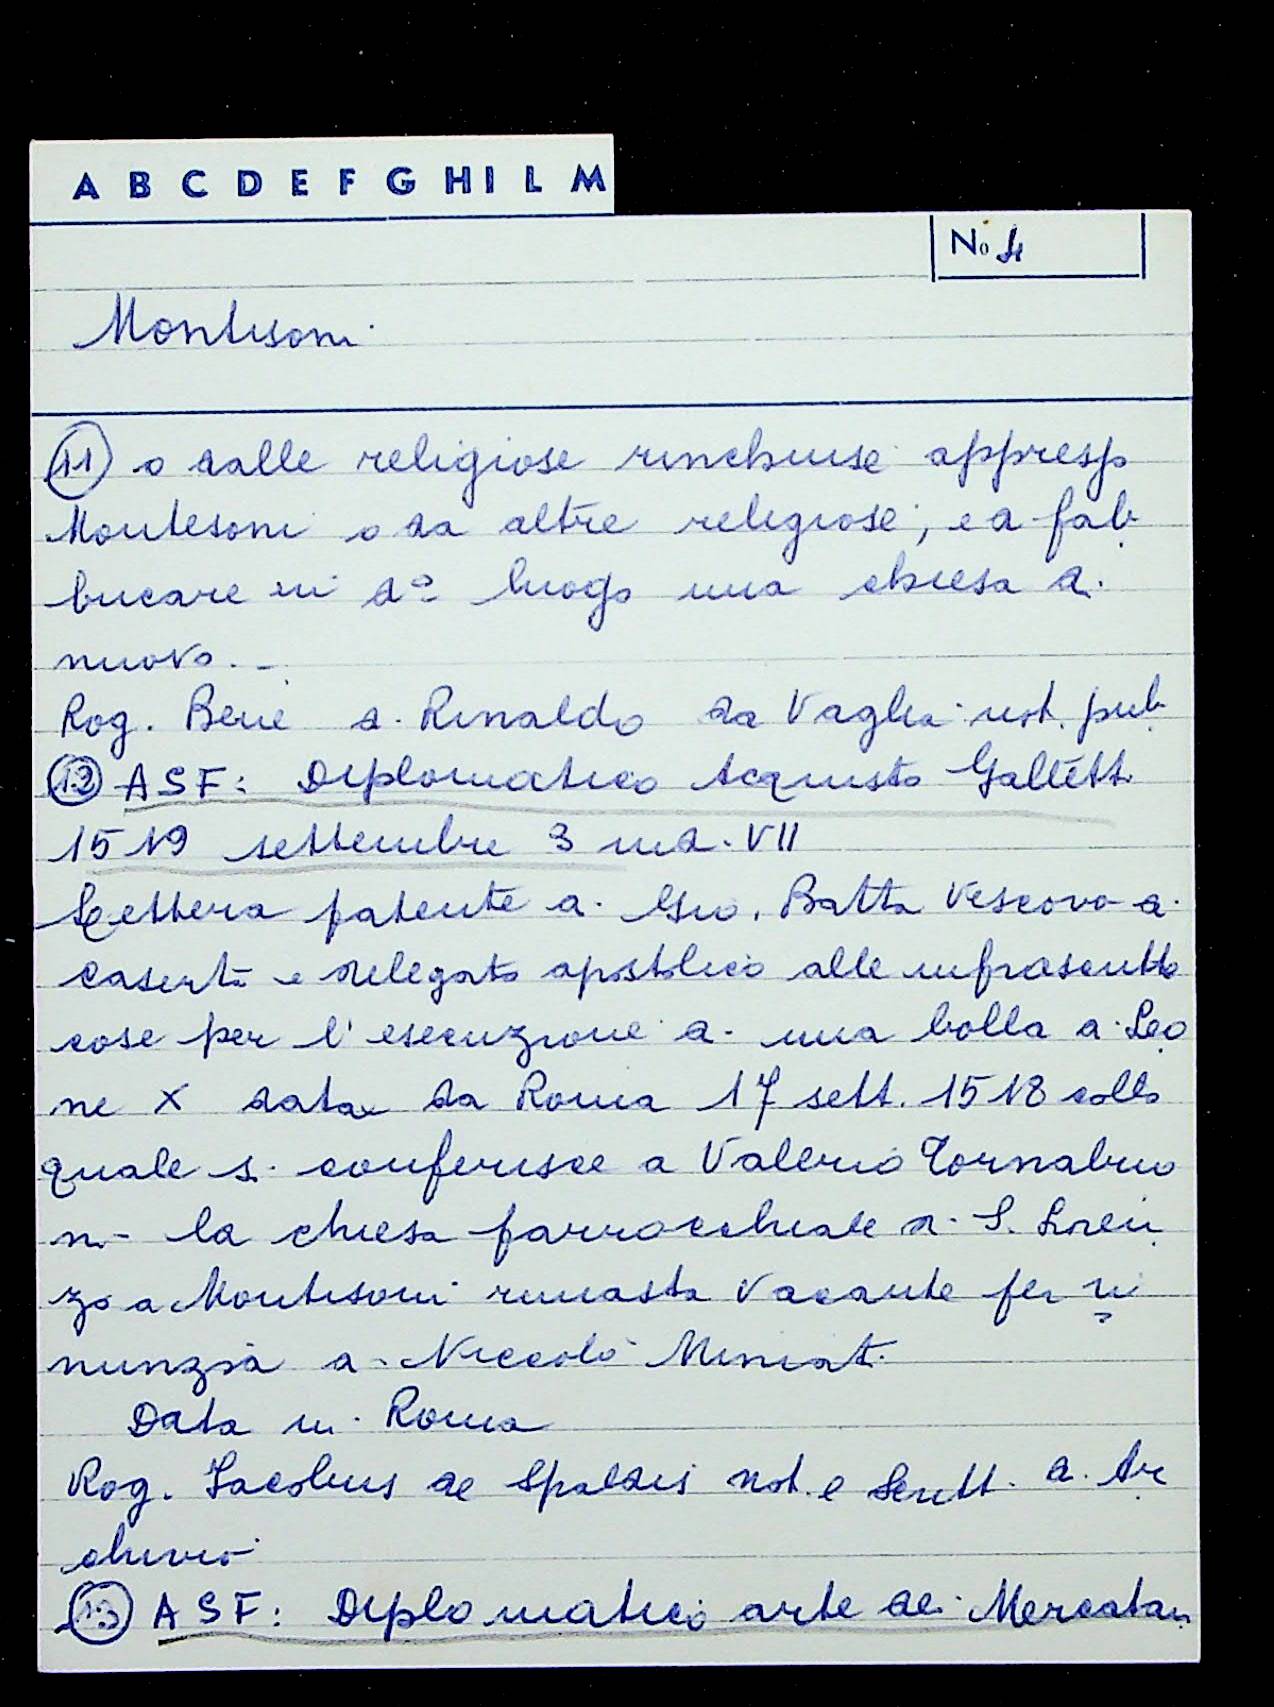 A B C D E F G H I L M
No 4
Montisoni
11 o dalle religiose rinchiuse appresso
Montesoni o da altre religiose, e a fab
bricare in do luogo una chiesa di
nuovo. -
Rog. Bene di Rinaldo da Vaglia not. pub
12 ASF: Diplomatico Acquisto Galletti
1519 settembre 3 ind. VII
Lettera patente di Gio. Batta Vescovo di
Caserta e delegato apostolico alle infrascritte
cose per l'esecuzione di una bolla di Leo
ne X data da Roma 17 sett. 1518 colla
quale si conferisce a Valerio Tornabuo
ni la chiesa parrocchiale di S. Loren
zo a Montisoni rimasta vacante per ri
nunzia di Niccolò Miniati
Data in Roma
Rog. Jacobus de Spaldis not. e scritt. di Ar
chivio
13 ASF: Diplomatico arte dei Mercatan